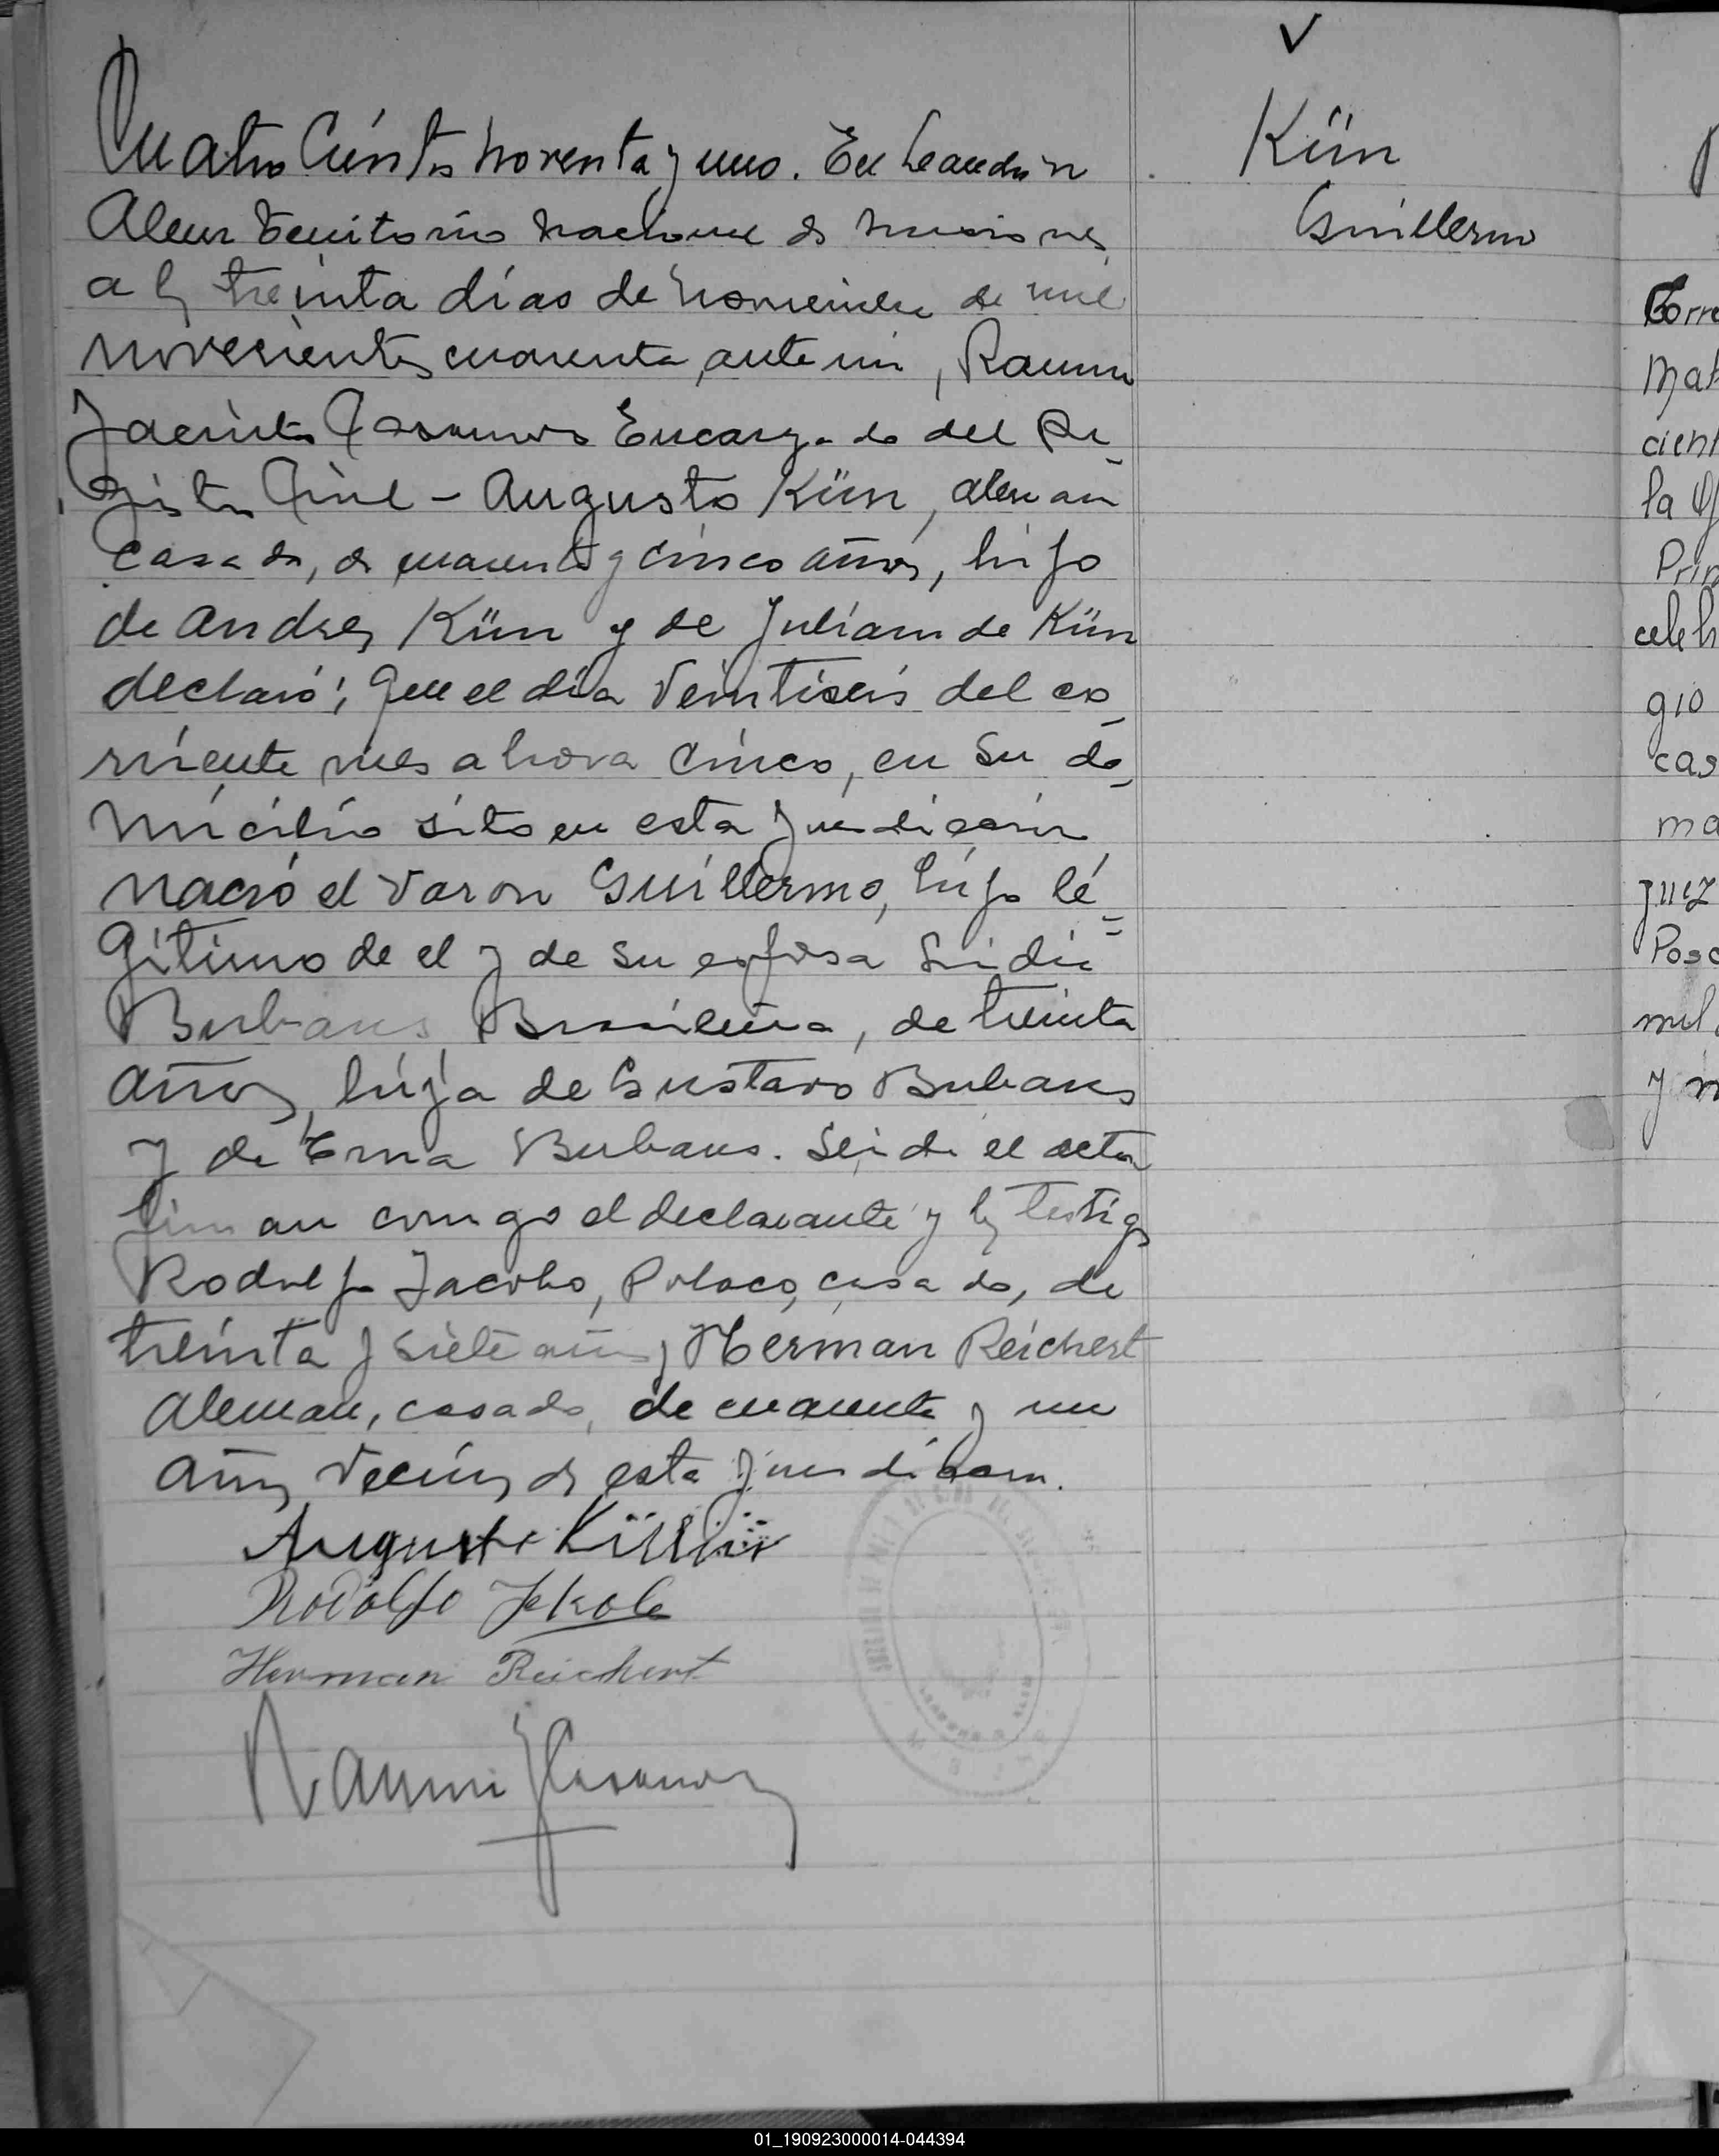 Cuatro Cientos noventa y uno. En Leandro N
Alem Territorio nacional de misiones
a los treinta días de noviembre de mil
novecientos cuarenta, ante mi, Ramon
Jacinto Casanova Encargado del Re-
gistro Civil - Augusto Kün, aleman
casado, de cuarenta y cinco años, hijo
de Andres Kün y de Juliana de Kün
declaró; Que el día Veintiseis del co-
rriente mes a hora cinco, en su do-
micilio sito en esta Jurisdiccion
nació el Varon Guillermo, hijo lé-
gitimo de el y de su esposa
Brasileña, de treinta
años, hija de Gustavo Bubans
y de Erna Bubans. Leida el acta
firman comigo el declarante y los testigos
Rodolfo Jacobo, Polaco, casado, de
treinta y siete años y Herman Reichert
Aleman, casado, de cuarenta y un
años Vecinos de esta Jurisdiccion.
Rodolfo Jekole
Herman Reichert
Ramon J Casanova
Kün
Guillermo
Corre
Mat
cient
la Of
Prin
celeb
gio
cas
ma
juez
Posa
mil
y m
01_190923000014-044394